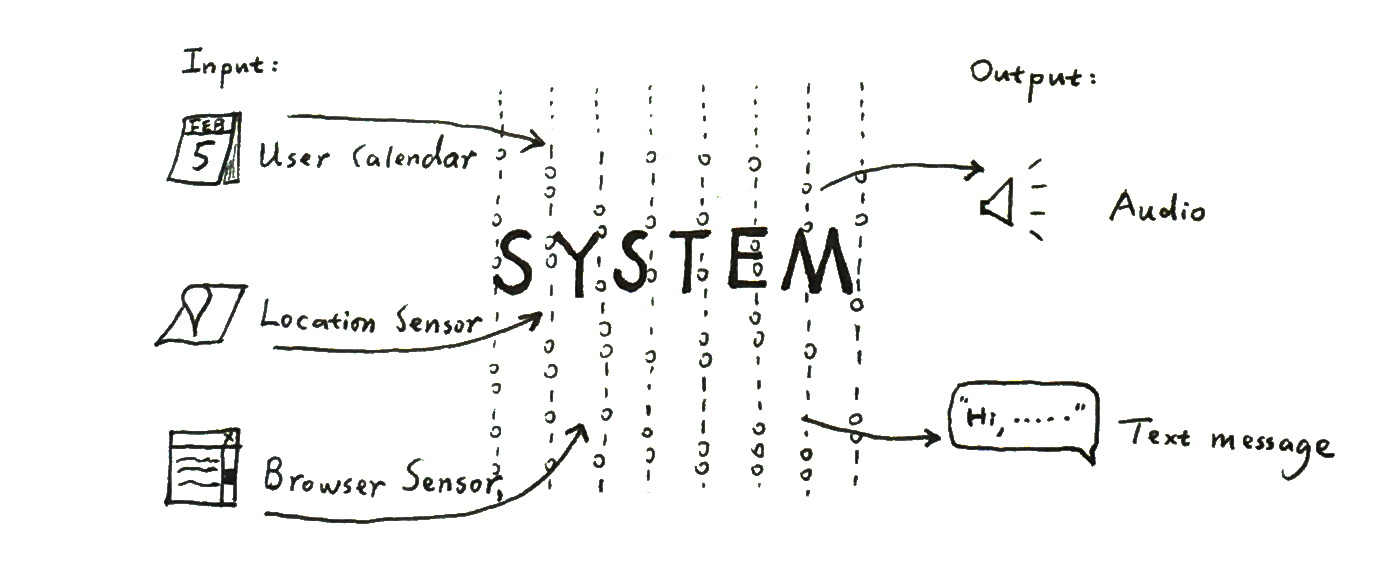 Input:
FEB
5
User Calendar
Location Sensor
Browser Sensor
SYSTEM
Output:
Audio
"Hi, ....."
Text message